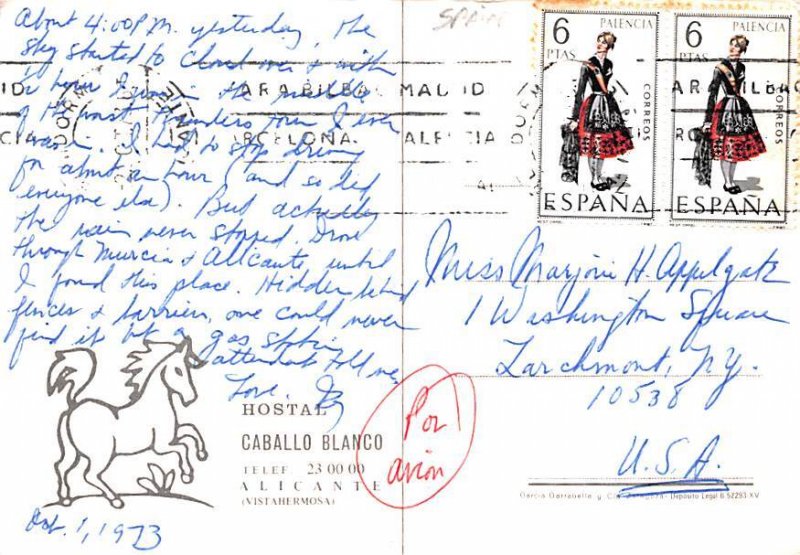 About 4:00 P.M. yesterday, the
sky started to cloud over & with
in hour I was in the middle
of the worst thunders torm I ever
was in. I had to stop driving
for almost an hour (and so did
everyone else). But actually
the rain never stopped. Drove
through Murcia & Alicante until
I found this place. Hidden behind
fences & barriers, one could never
find it but a gas station
attendant told me.
Love,
HOSTAL
CABALLO BLANCO
TELEF. 23 00 00
ALICANTE
(VISTAHERMOSA)
Oct. 1, 1973
Por
avion
SPAIN
6
PTAS
PALENCIA
CORREOS
ESPAÑA
6
PTAS
PALENCIA
CORREOS
ESPAÑA
PARA BILBAO MADRID
BARCELONA VALENCIA
Miss Marjorie H. Applgate
1 Washington Square
Larchmont, N.Y.
10538
U.S.A.
Garcia Garrabella y Depósito Legal B. 52293-XV